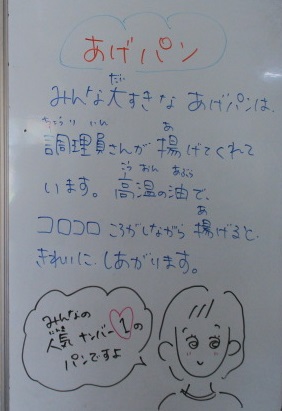 あげパン
みんな大すきな あげパンは、
調理員さんが 揚げてくれて
います。高温の油で、
コロコロ ころがしながら 揚げると、
きれいに しあがります。
みんなの
人気 ナンバー1の
パンですよ